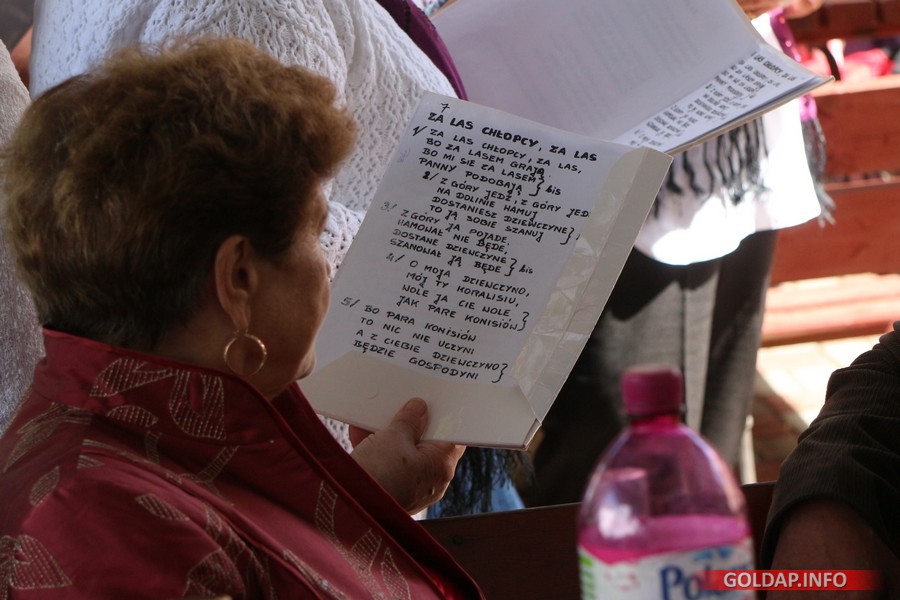 7
ZA LAS CHŁOPCY, ZA LAS
1/ ZA LAS CHŁOPCY, ZA LAS,
BO ZA LASEM GRAJĄ
BO MI SIĘ ZA LASEM
PANNY PODOBAJĄ } bis
2/ Z GÓRY JEDŹ, Z GÓRY JEDŹ
NA DOLINIE HAMUJ
DOSTANIESZ DZIEWCZYNĘ
TO JĄ SOBIE SZANUJ }
3/ Z GÓRY JA POJADĘ,
HAMOWAŁ NIE BĘDĘ,
DOSTANĘ DZIEWCZYNĘ
SZANOWAŁ JĄ BĘDĘ } bis
4/ O MOJA DZIEWCZYNO,
MÓJ TY KORALISIU,
WOLĘ JA CIĘ WOLĘ
JAK PARĘ KONISIÓW }
5/ BO PARA KONISIÓW
TO NIC NIE UCZYNI
A Z CIEBIE DZIEWCZYNO
BĘDZIE GOSPODYNI }
ZA LAS CHŁOPCY, ZA LAS
GOLDAP.INFO